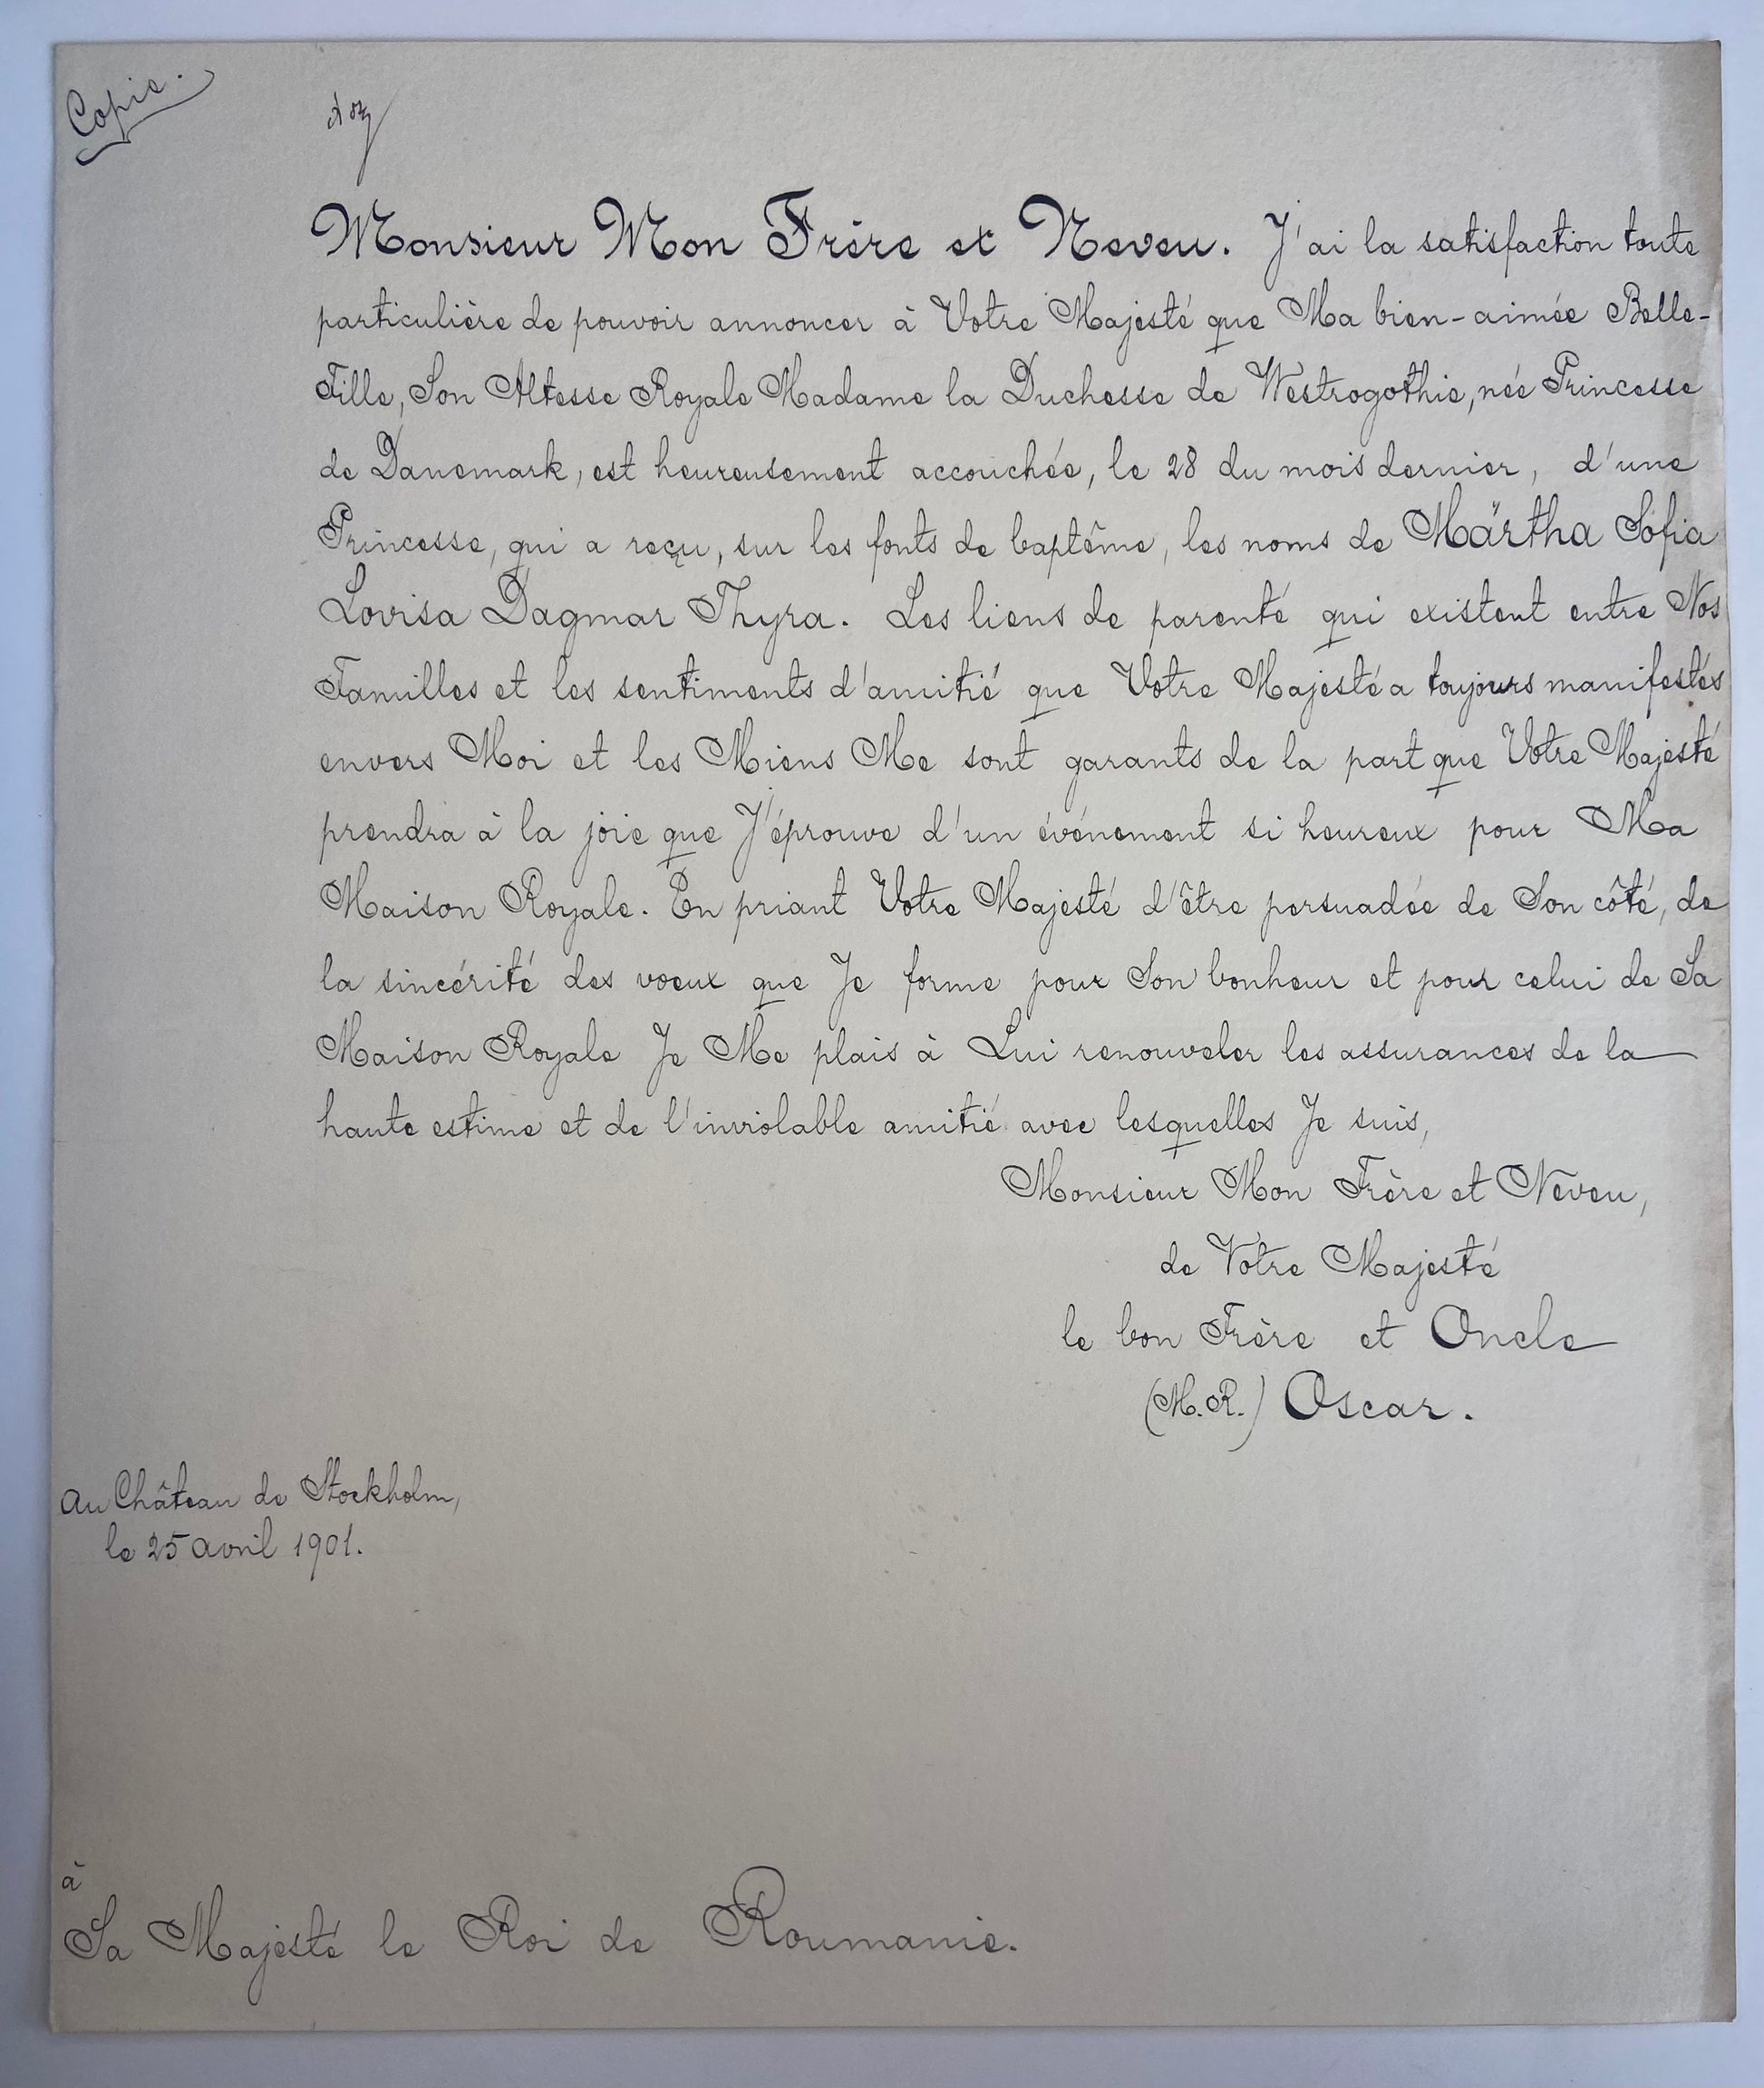 Copie.
Monsieur Mon Frère et Neveu. J'ai la satisfaction toute
particulière de pouvoir annoncer à Votre Majesté que Ma bien-aimée Belle-
Fille, Son Altesse Royale Madame la Duchesse de Westrogothie, née Princesse
de Danemark, est heureusement accouchée, le 28 du mois dernier, d'une
Princesse, qui a reçu, sur les fonts de baptême, les noms de Märtha Sofia
Lovisa Dagmar Thyra. Les liens de parenté qui existent entre Nos
Familles et les sentiments d'amitié que Votre Majesté a toujours manifestés
envers Moi et les Miens Me sont garants de la part que Votre Majesté
prendra à la joie que J'éprouve d'un événement si heureux pour Ma
Maison Royale. En priant Votre Majesté d'être persuadée de Son côté, de
la sincérité des voeux que Je forme pour Son bonheur et pour celui de Sa
Maison Royale Je Me plais à Lui renouveler les assurances de la
haute estime et de l'inviolable amitié avec lesquelles Je suis,
Monsieur Mon Frère et Neveu,
de Votre Majesté
le bon Frère et Oncle
(M.R.) Oscar.
Au Château de Stockholm,
le 25 avril 1901.
à
Sa Majesté le Roi de Roumanie.